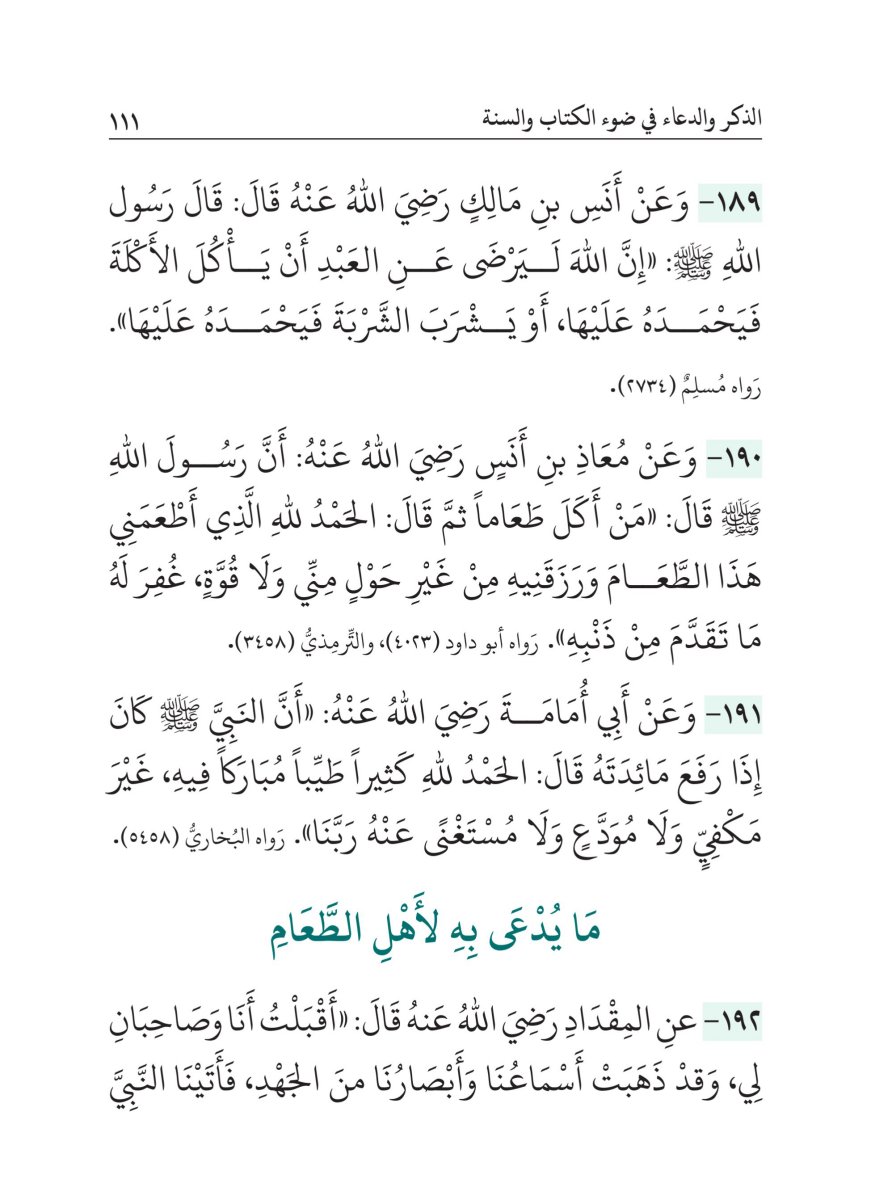 الذكر والدعاء في ضوء الكتاب والسنة ١١١
١٨٩- وَعَنْ أَنَسِ بنِ مَالِكٍ رَضِيَ اللهُ عَنْهُ قَالَ: قَالَ رَسُول
اللهِ ﷺ: «إِنَّ اللهَ لَـيَرْضَى عَـنِ العَبْدِ أَنْ يَـأْكُلَ الأَكْلَةَ
فَيَحْمَـدَهُ عَلَيْهَا، أَوْ يَـشْرَبَ الشَّرْبَةَ فَيَحْمَـدَهُ عَلَيْهَا».
رَواه مُسلِمٌ (٢٧٣٤).
١٩٠- وَعَنْ مُعَاذِ بنِ أَنَسٍ رَضِيَ اللهُ عَنْهُ: أَنَّ رَسُـولَ اللهِ
ﷺ قَالَ: «مَنْ أَكَلَ طَعَاماً ثمَّ قَالَ: الحَمْدُ للهِ الَّذِي أَطْعَمَنِي
هَذَا الطَّعَـامَ وَرَزَقَنِيهِ مِنْ غَيْرِ حَوْلٍ مِنِّي وَلَا قُوَّةٍ، غُفِرَ لَهُ
مَا تَقَدَّمَ مِنْ ذَنْبِهِ». رَواه أبو داود (٤٠٢٣)، والتِّرمِذيُّ (٣٤٥٨).
١٩١- وَعَنْ أَبِي أُمَامَـةَ رَضِيَ اللهُ عَنْهُ: «أَنَّ النَبِيَّ ﷺ كَانَ
إِذَا رَفَعَ مَائِدَتَهُ قَالَ: الحَمْدُ للهِ كَثِيراً طَيِّباً مُبَارَكاً فِيهِ، غَيْرَ
مَكْفِيٍّ وَلَا مُوَدَّعٍ وَلَا مُسْتَغْنًى عَنْهُ رَبَّنَا». رَواه البُخاريُّ (٥٤٥٨).
مَا يُدْعَى بِهِ لأَهْلِ الطَّعَامِ
١٩٢- عنِ المِقْدَادِ رَضِيَ اللهُ عَنهُ قَالَ: «أَقْبَلْتُ أَنَا وَصَاحِبَانِ
لِي، وَقدْ ذَهَبَتْ أَسْمَاعُنَا وَأَبْصَارُنَا منَ الجَهْدِ، فَأَتَيْنَا النَّبِيَّ